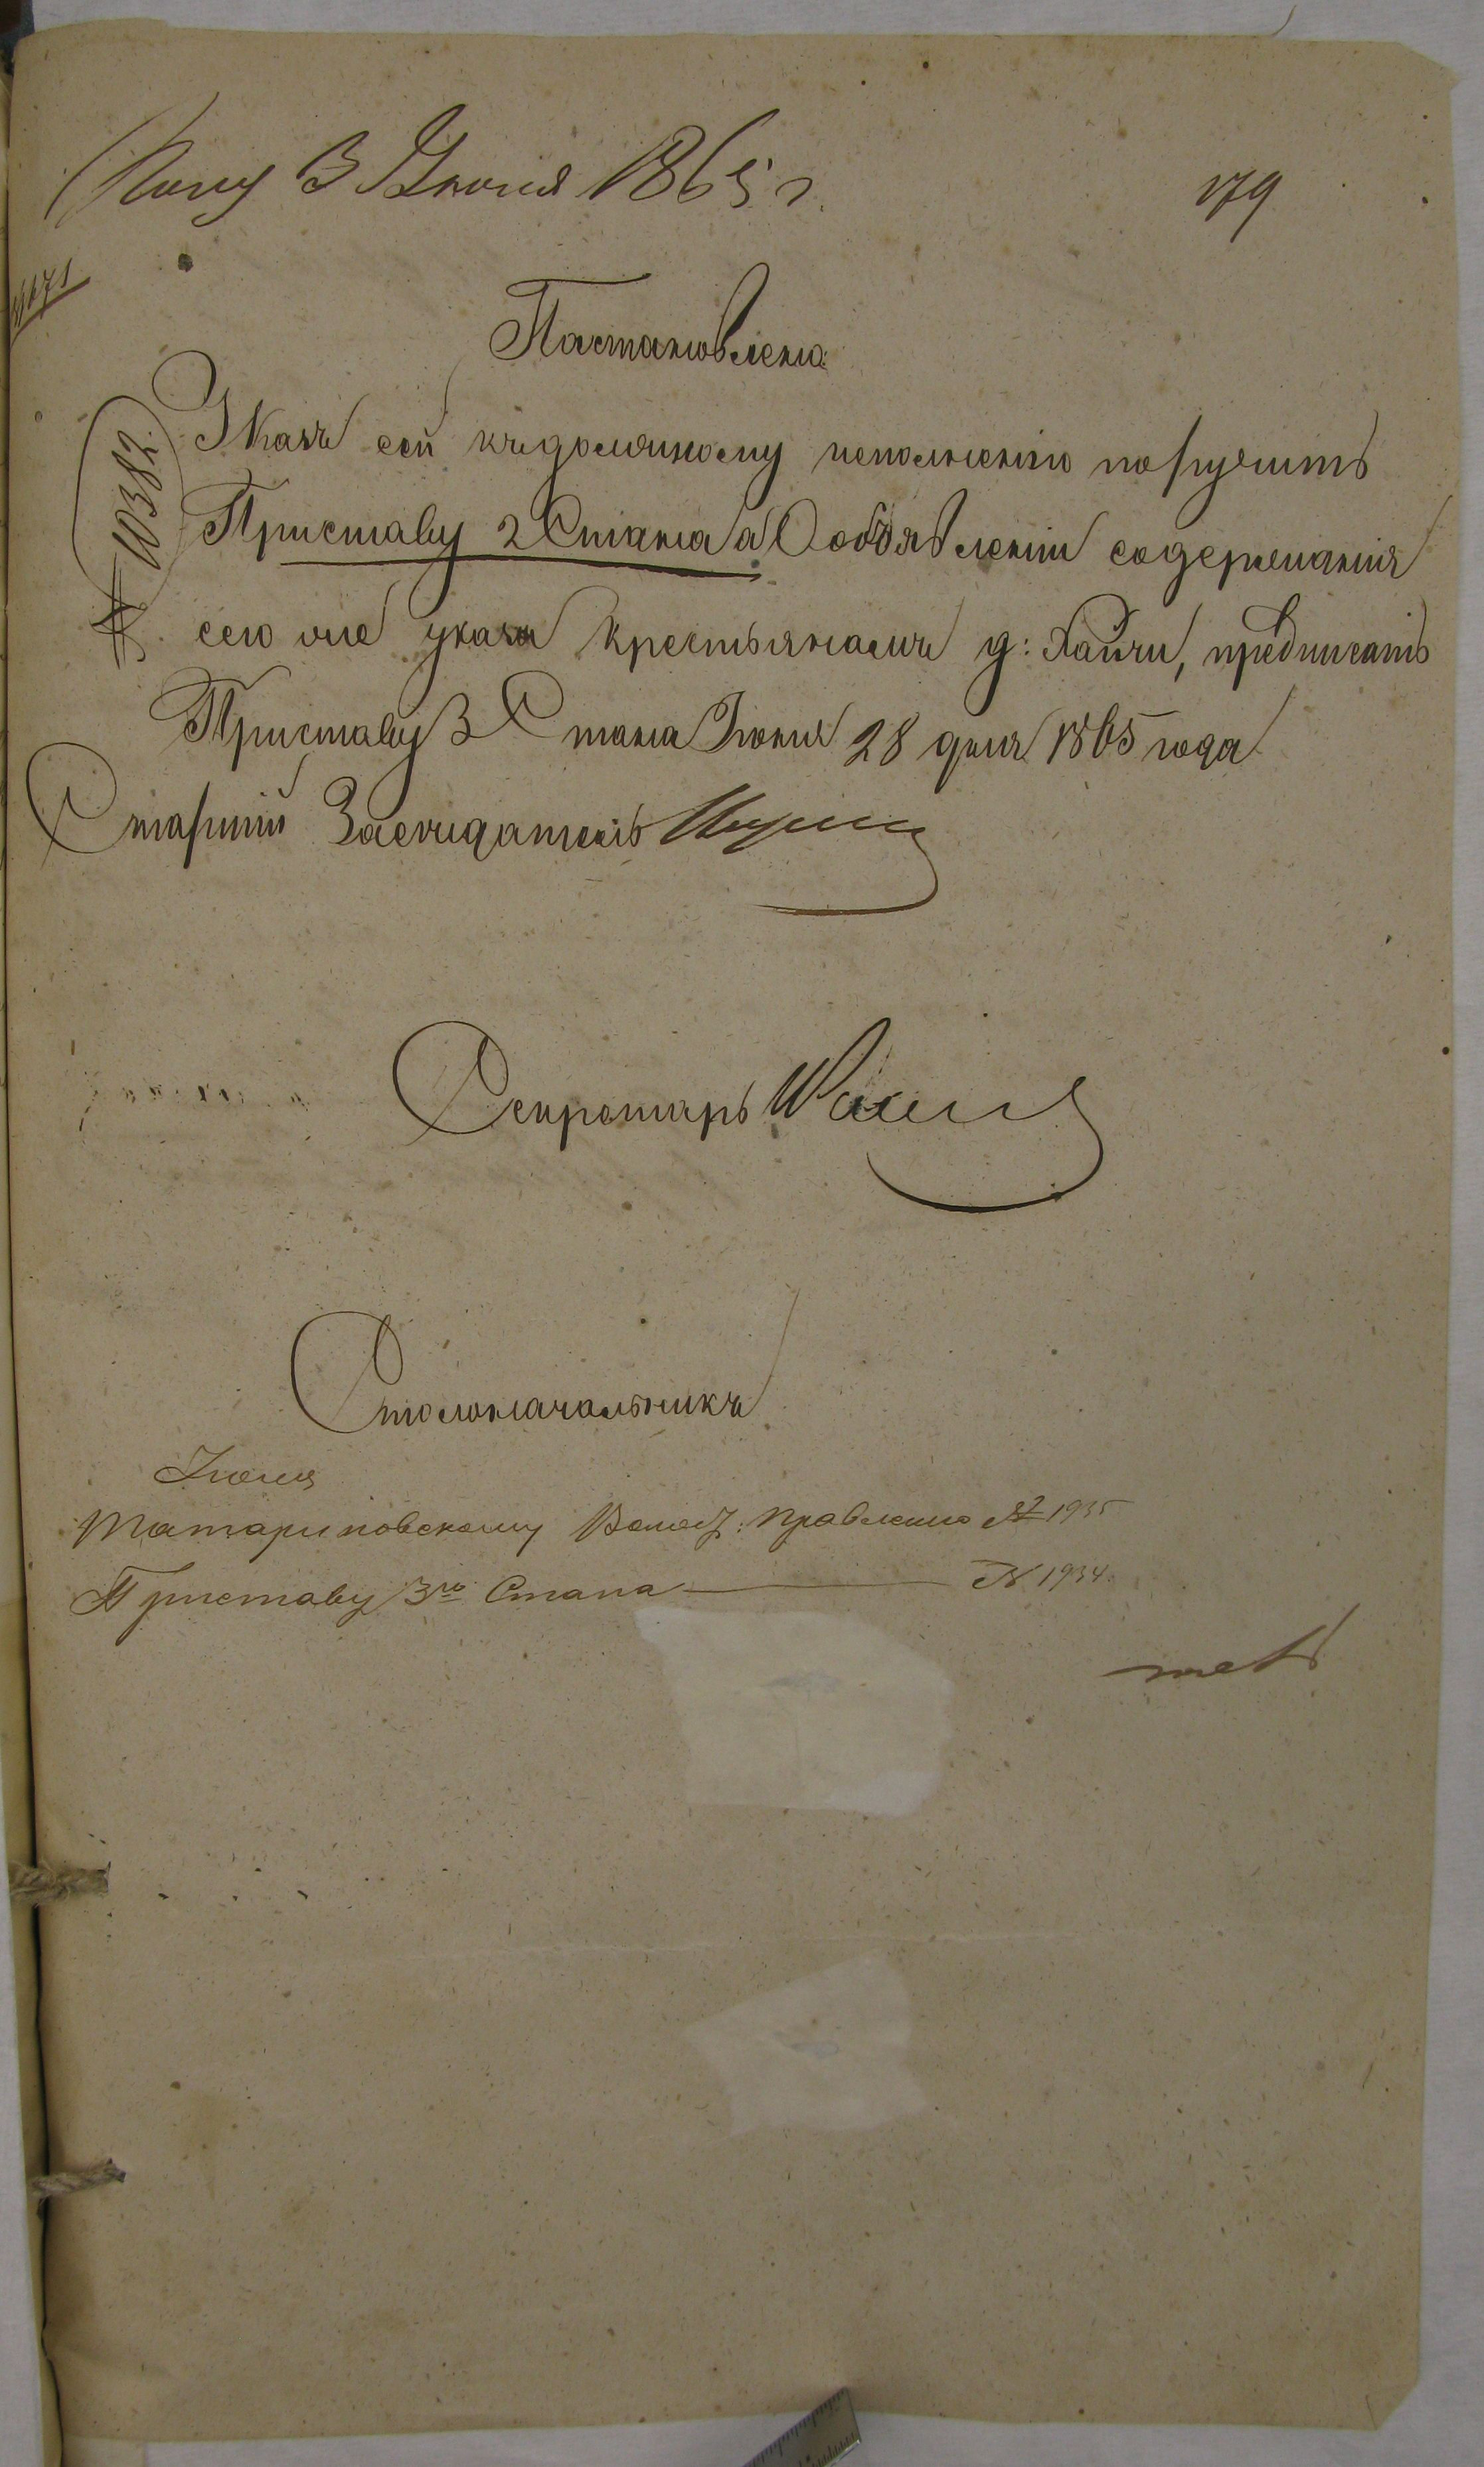 Полу 3 Июля 1865 г.
179
Пастановлено:
Указъ сей къ должному исполненію поручить
№ 10382
Приставу 2 Стана а О объявленіи содержанія
сего же указа крестьянамъ д: Хайчи, предписать
Приставу 3 Стана Іюня 28 дня 1865 года
Старшій Засѣдатель
Секретарь
Столоначальникъ
Іюля
Татариновскому Волос: Правленію № 1935
Приставу 3го Стана № 1934